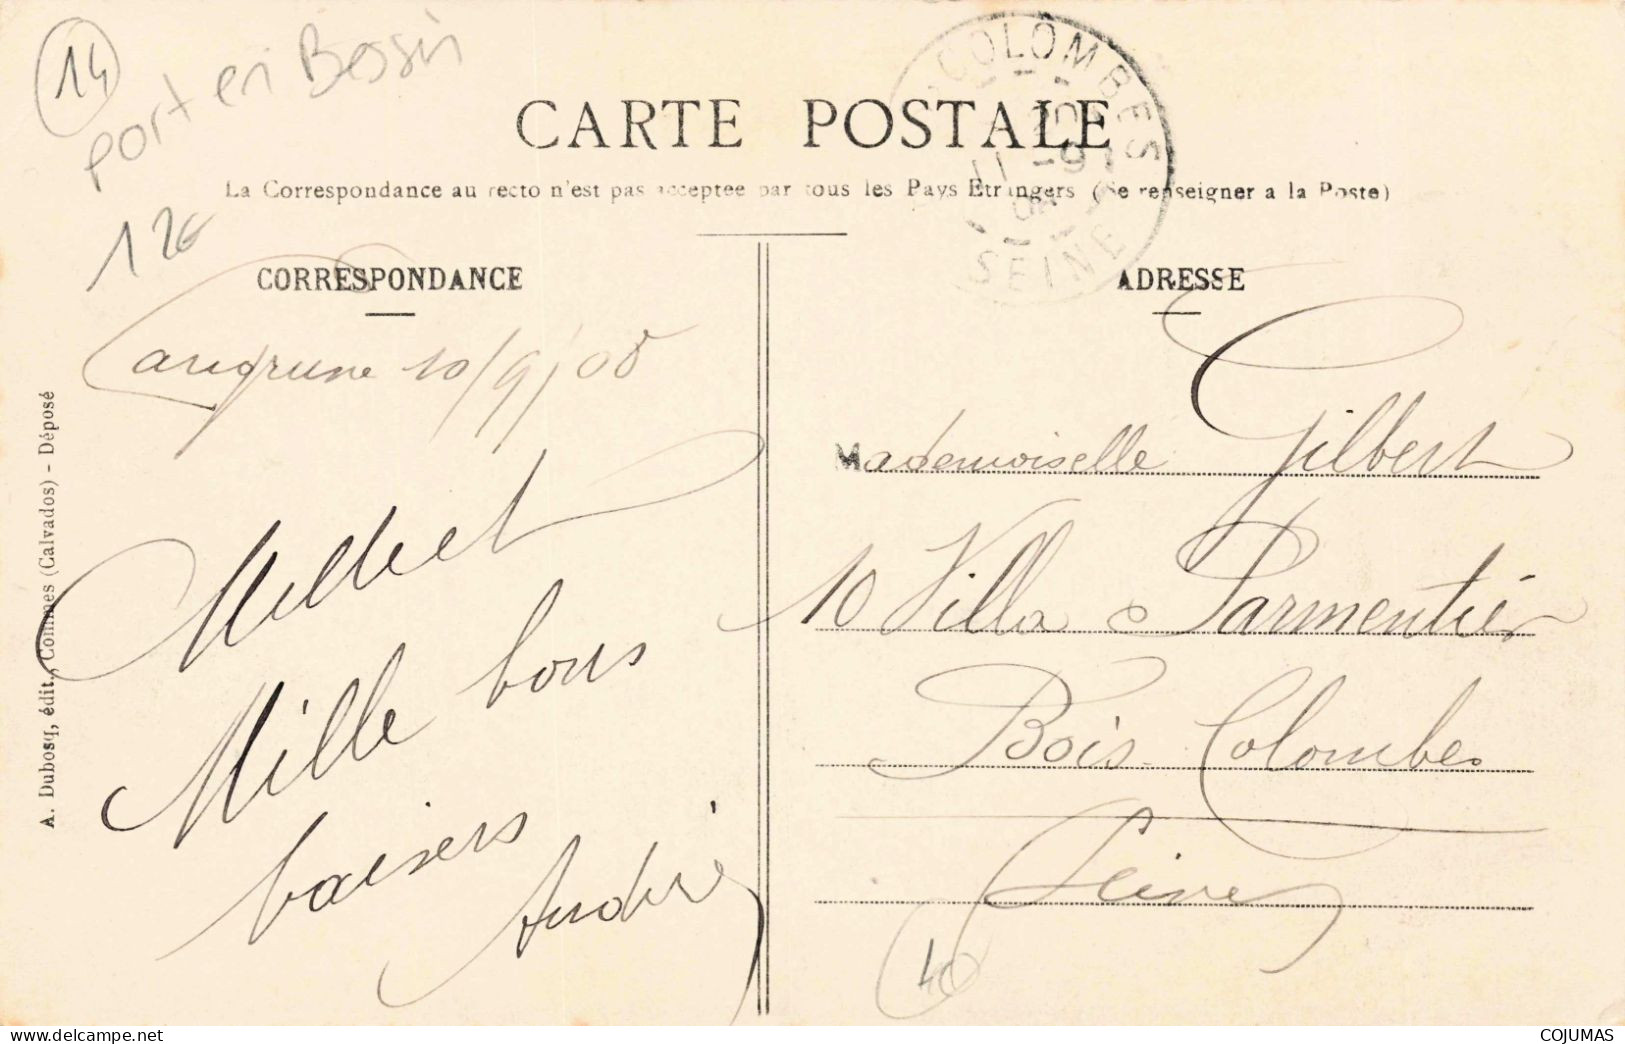 14
port en Bessin
12€
CARTE POSTALE
La Correspondance au recto n'est pas acceptee par tous les Pays Etrangers (Se renseigner a la Poste)
COLOMBES
11 - 9
08
SEINE
CORRESPONDANCE
Langrune 10/9/08
Mille bons
baisers
André
A. Dubosq, édit., Commes (Calvados) - Déposé
ADRESSE
Mademoiselle Gilbert
10 Villa Parmentier
Bois-Colombes
Seine
40
COJUMAS